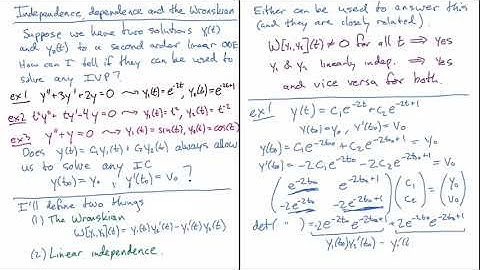 Independence, dependence and the Wronskian
Suppose we have two solutions y₁(t)
and y₂(t) to a second order linear ODE
How can I tell if they can be used to
solve any IVP?
ex1 y''+3y'+2y=0 ⤳ y₁(t)=e^-2t, y₂(t)=e^-2t+1
ex2 t²y''+ty'-4y=0 ⤳ y₁(t)=t², y₂(t)=t^-2
ex3 y''+y=0 ⤳ y₁(t)=sin(t), y₂(t)=cos(t)
Does y(t)=C₁y₁(t)+C₂y₂(t) always allow
us to solve any IC
y(t₀)=y₀, y'(t₀)=v₀ ?
I'll define two things
(1) The Wronskian
W[y₁,y₂](t)=y₁(t)y₂'(t)-y₁'(t)y₂(t)
(2) Linear independence.
Either can be used to answer this
(and they are closely related).
W[y₁,y₂](t)≠0 for all t ⟹ yes
y₁ & y₂ linearly indep. ⟹ yes
and vice versa for both.
ex1 y(t)=C₁e^-2t+C₂e^-2t+1
y(t₀)=y₀, y'(t₀)=v₀
y(t₀)=C₁e^-2t₀+C₂e^-2t₀+1=y₀
y'(t₀)=-2C₁e^-2t₀-2C₂e^-2t₀+1=v₀
(e^-2t₀ e^-2t₀+1) (C₁) = (y₀)
(-2e^-2t₀ -2e^-2t₀+1) (C₂) (v₀)
det( " )=-2e^-2t₀e^-2t₀+1+2e^-2t₀e^-2t₀+1
y₁(t₀)y₂'(t₀)-y₁'(t